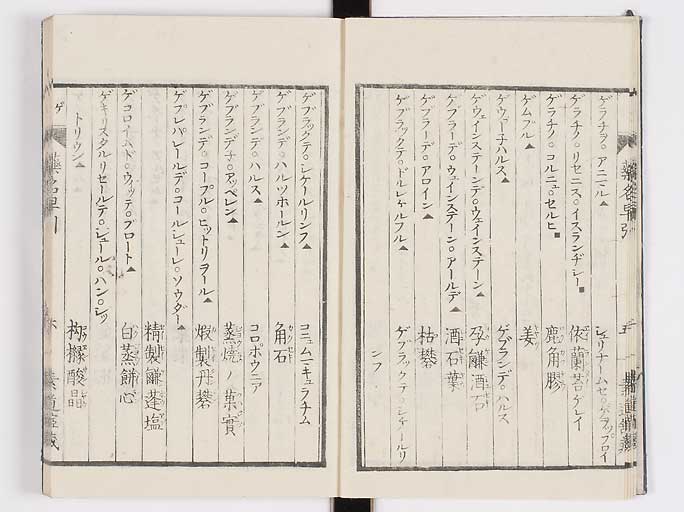 ゲラチナ。アニマル▲ シェリナームセ。ゲラップロイ
ゲラチノ。リセニス。イスランヂシー■ 依蘭苔ゲレイ
ゲラチノ。コルニュ。セルヒ■ 鹿角膠
ゲムブル▲ 姜
ゲヴーチハルス▲ ゲブランデ。ハルス
ゲウェインステーンデ。ウェインステーン▲ 孕鹻酒石
ゲブラーデ。ウェインステーン。アールデ▲ 酒石葉
ゲブラーデ。アロイン▲ 枯礬
ゲブラックテ。ドルレキルフル▲ ゲブラックテ。シケールリンフ
ゲブラックテ。シケールリンフ▲ コニュムニキュラチム
ゲブランデ。ハルツホールン▲ 角石
ゲブランデ。ハルス▲ コロポウニア
ゲブランデチ。アッペレン▲ 蒸焼ノ菓實
ゲブランデ。コープル。ヒットリヲール▲ 煆製丹礬
ゲプレパレールデ。コールシューレ。ソウダー▲ 精製鹻蓬塩
ゲコロイムド。ウィッテ。ブロート▲ 白蒸餅心
ゲキリスタルリセールデ。シュール。ハン。シッ
トリウン▲ 枸櫞酸晶
ゲ 藥名早引 六
藥名早引 五